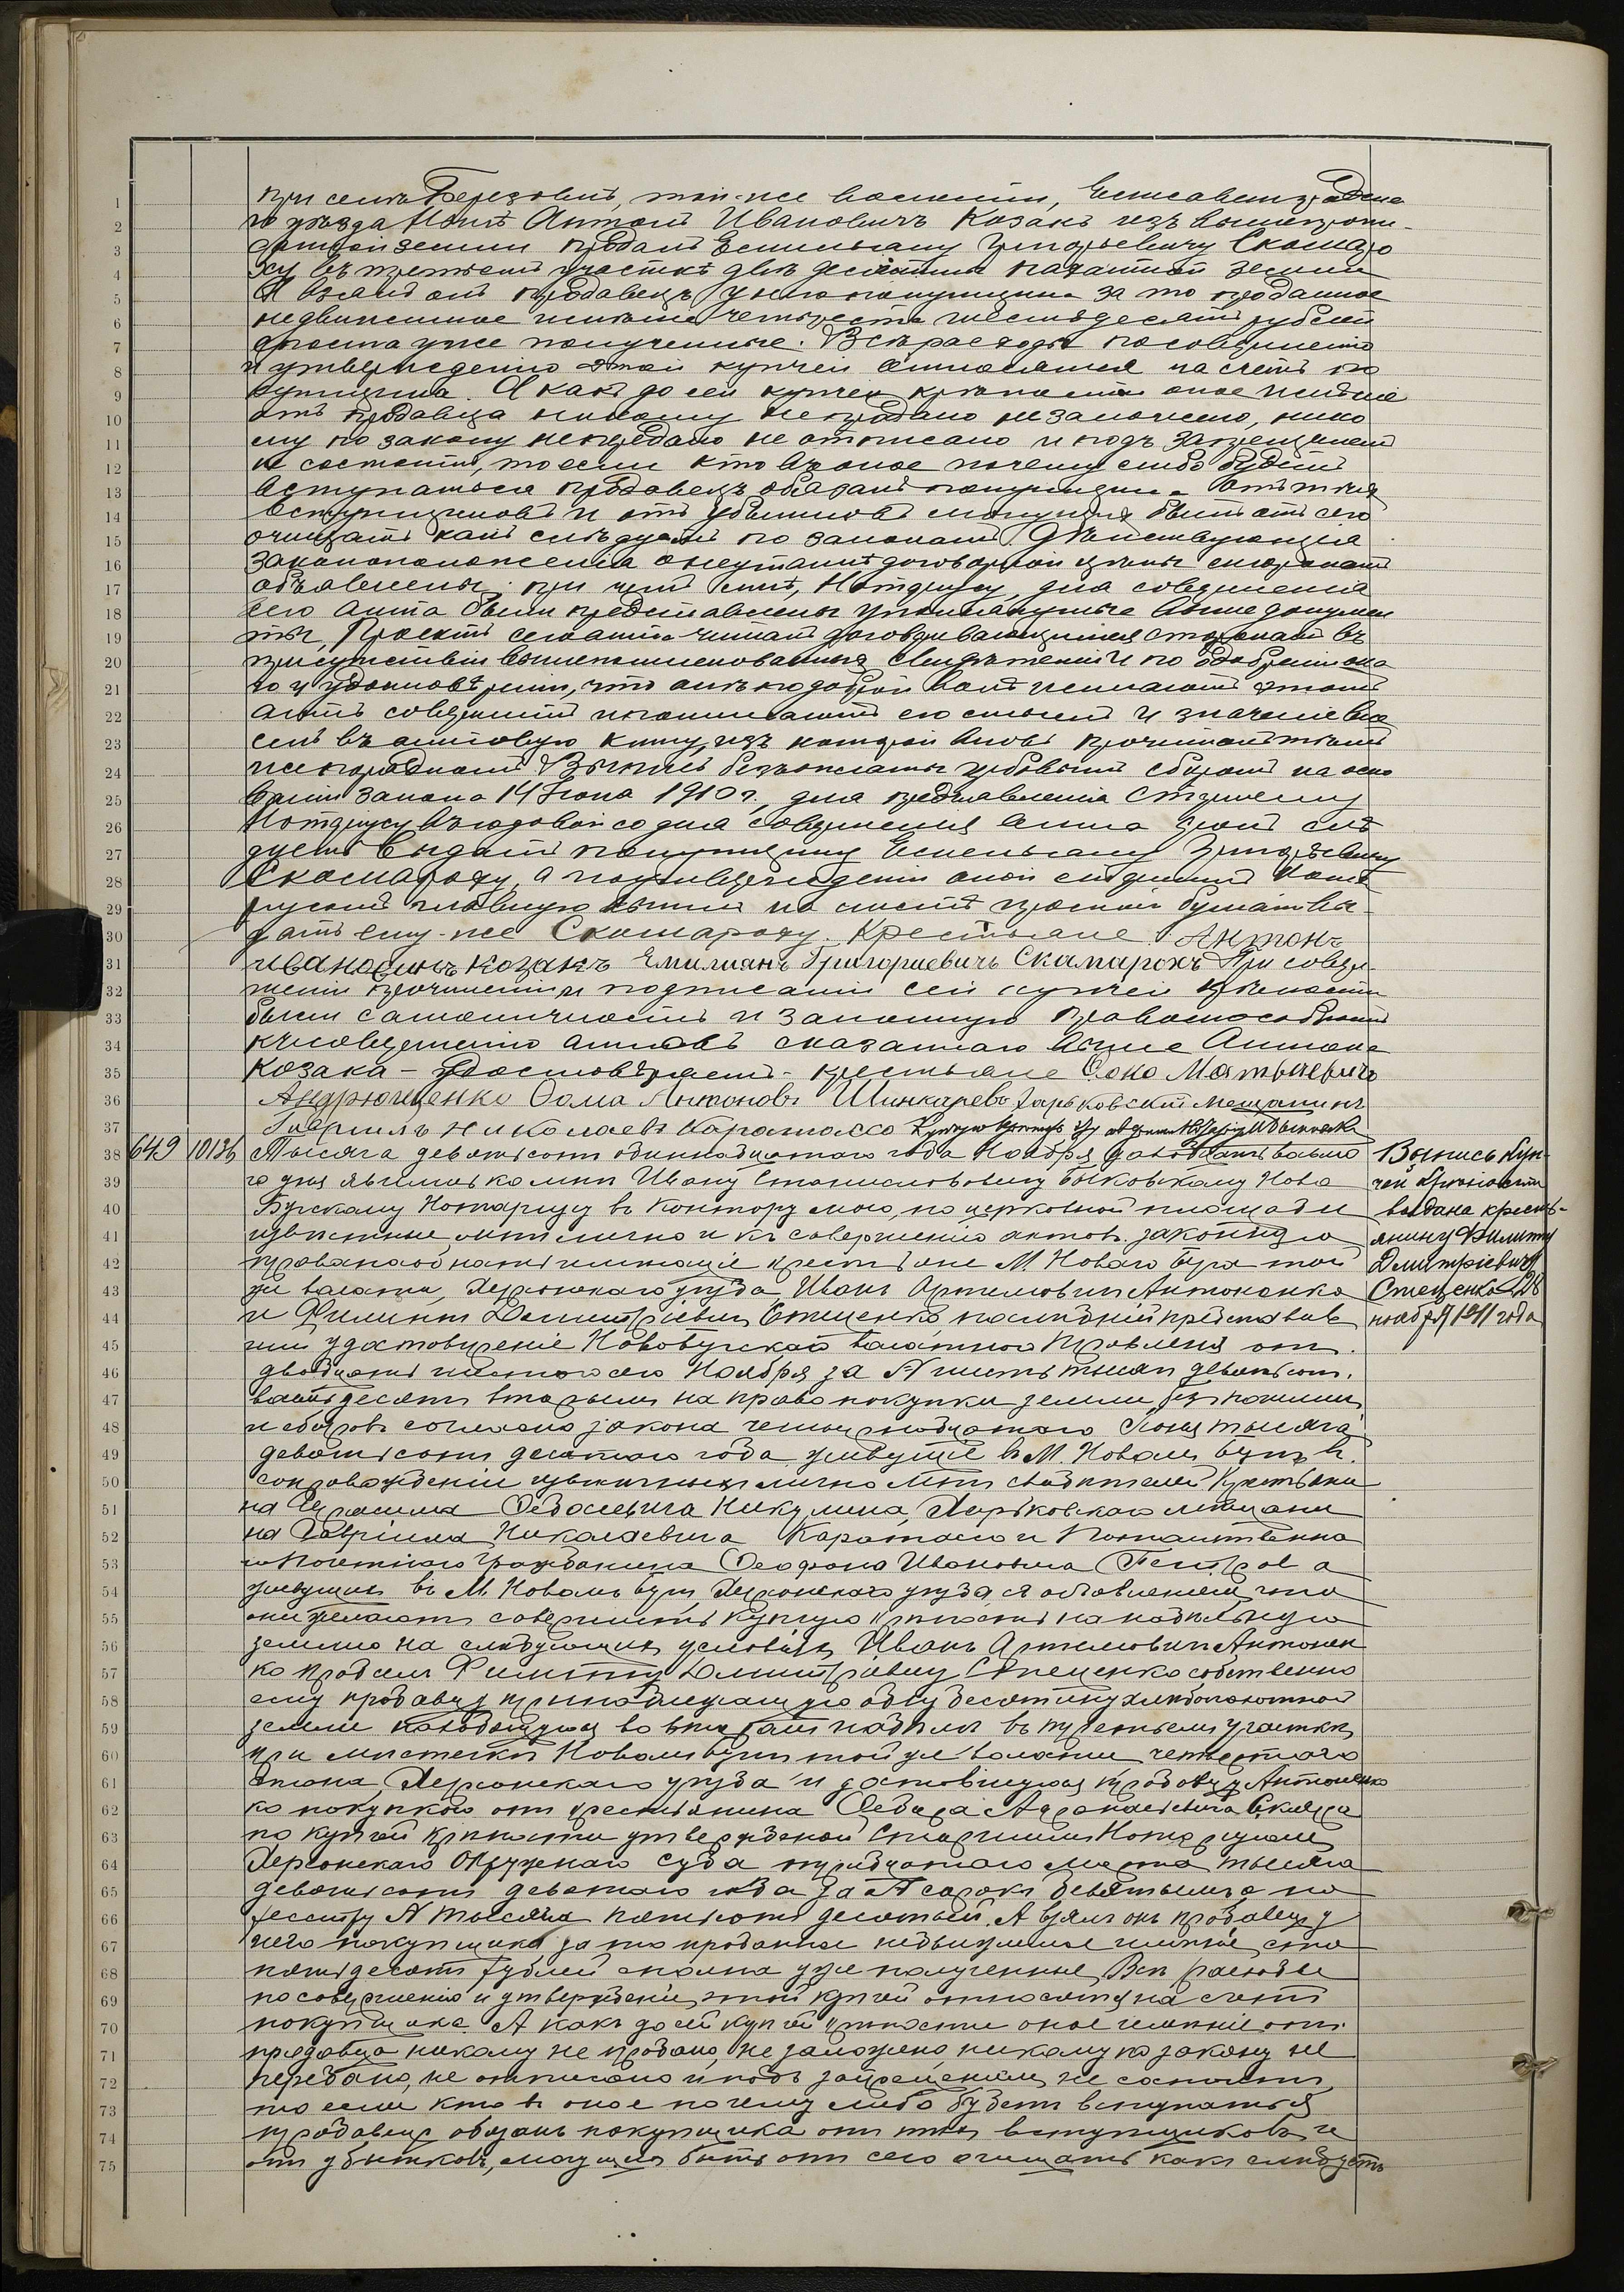 при селѣ Березовкѣ, той-же волости, Елисаветградска
го уѣзда Нынѣ Антонъ Ивановичъ Козакъ изъ вышепропи-
санной земли продалъ Емельяну Григорьевичу Скомаро
ху въ третьемъ участкѣ двѣ десятины пахатной земли
А взялъ онъ продавецъ у него покупщика за то проданное
недвижимое имѣніе четыреста шестьдесятъ рублей
сполна уже полученные. Всѣ расходы по совершенію
и утвержденію этой купчей относятся на счетъ по
купщика. А какъ до сей купчей крѣпости оное имѣніе
отъ продавца никому не продано не заложено, нико
му по закону не передано не отписано и подъ запрещеніемъ
не состоитъ, то если кто въ оное почему либо будетъ
вступаться продавецъ обязанъ покупщика отъ тѣхъ
вступщиковъ и отъ убытковъ могущихъ быть отъ сего
очищать какъ слѣдуетъ по законамъ. Дѣйствующія
законоположенія о неутайкѣ договорной цѣны сторонамъ
объявлены; при чемъ мнѣ, Нотаріусу, для совершенія
сего акта были представлены упомянутые выше докумен
ты, Проектъ сего акта читанъ договаривающимся сторонамъ въ
присутствіи вышепоименованныхъ свидѣтелей и по одобреніи она
го и удостовѣреніи, что они по доброй волѣ желаютъ этотъ
актъ совершить и понимаютъ его смыслъ и значеніе вне
сенъ въ актовую книгу, изъ которой вновь прочитанъ тѣмъ
же порядкомъ. Выпись безъ оплаты гербовымъ сборомъ на осно
ваніи закона 14 Іюня 1910 г., для представленія Старшему
Нотаріусу въ годовой со дня совершенія акта срокъ слѣ
дуетъ выдать покупщику Емельяну Григорьевичу
Скомароху, а по утвержденіи оной старшимъ Нота
ріусомъ главную выпись на листѣ простой бумаги вы-
дать ему-же Скомароху. Крестьяне Антонъ
Ивановичъ козакъ Емилианъ Григориевичъ Скамарохъ При совер-
шеніи прочтеніи и подписаніи сей купчей крѣпости
были самоличность и законную правоспособность
къ совершенію актовъ сказаннаго выше Антона
Козака - удостовѣряемъ - крестьяне Сано Матвіевичъ
Андрющенко Ѳома Антоновъ Шинкаревъ Харьковскій мещанинъ
Гавріилъ Николаевъ Каратассо
649 10136 Тысяча девятьсотъ одиннадцатаго года Ноября двадцать восьма
го дня явились ко мнѣ Ивану Станиславовичу Быковскому Ново
Бугскому Нотаріусу въ контору мою, на церковной площади
извѣстные мнѣ лично и къ совершенію актовъ законную
правоспособность имѣющіе крестьяне М. Новаго Буга той
же волости, Херсонскаго уѣзда, Иванъ Артемовичъ Антоненко
и Филиппъ Дмитріевичъ Стеценко, послѣдній представив
шій удостовѣреніе Новобугскаго волостного Правленія отъ
двадцать шестого сего Ноября за № шесть тысячъ девятьсотъ
восемьдесятъ вторымъ на право покупки земли безъ пошлинъ
и сборовъ согласно закона четырнадцатаго Іюня тысяча
девятьсотъ десятаго года живущіе въ М. Новомъ Бугѣ въ
сопровожденіи извѣстныхъ лично мнѣ свидѣтелей крестьяни
на Герасима Ѳедосѣевича Никулина, Харьковскаго мѣщани
на Гавріила Николаевича Каратассо и Потомственна
го Почетнаго гражданина Ѳеофана Ивановича Петрова
живущихъ въ М. Новомъ Бугѣ Херсонскаго уѣзда, съ объявленіемъ, что
они желаютъ совершить купчую крѣпость на надѣльную
землю на слѣдующихъ условіяхъ Иванъ Артемовичъ Антонен
ко продалъ Филиппу Дмитріевичу Стеценко собственно
ему продавцу принадлежащую одну десятину хлѣбопахотной
земли находящуюся во второмъ надѣлѣ въ третьемъ участкѣ
при мѣстечкѣ Новомъ Бугѣ той же волости четвертаго
стана, Херсонскаго уѣзда и доставшуюся продавцу Антоненко
ко покупкою отъ крестьянина Ѳедора Афанасіевича Скляра
по купчей крѣпости утвержденной Старшимъ Нотаріусомъ
Херсонскаго Окружнаго суда тридцатаго Марта тысяча
девятьсотъ девятаго года за № сорокъ девятымъ по
реестру № тысяча пятьсотъ десятый. А взялъ онъ продавецъ у
него покупщика за то проданное недвижимое имѣніе сто
пятьдесятъ рублей сполна уже полученные, Всѣ расходы
по совершенію и утвержденію этой купчей относятся на счетъ
покупщика. А какъ до сей купчей крѣпости оное имѣніе отъ
продавца никому не продано, не заложено, никому по закону не
передано, не отписано и подъ запрещеніемъ не состоитъ,
то если кто въ оное почему либо будетъ вступаться
продавецъ обязанъ покупщика отъ тѣхъ вступщиковъ и
отъ убытковъ, могущихъ быть отъ сего очищать какъ слѣдуетъ
Выпись куп-
чей крѣпости
выдана кресть-
янину Филиппу
Дмитріевичу
Стеценко 28
ноября 1911 года
1
2
3
4
5
6
7
8
9
10
11
12
13
14
15
16
17
18
19
20
21
22
23
24
25
26
27
28
29
30
31
32
33
34
35
36
37
38
39
40
41
42
43
44
45
46
47
48
49
50
51
52
53
54
55
56
57
58
59
60
61
62
63
64
65
66
67
68
69
70
71
72
73
74
75